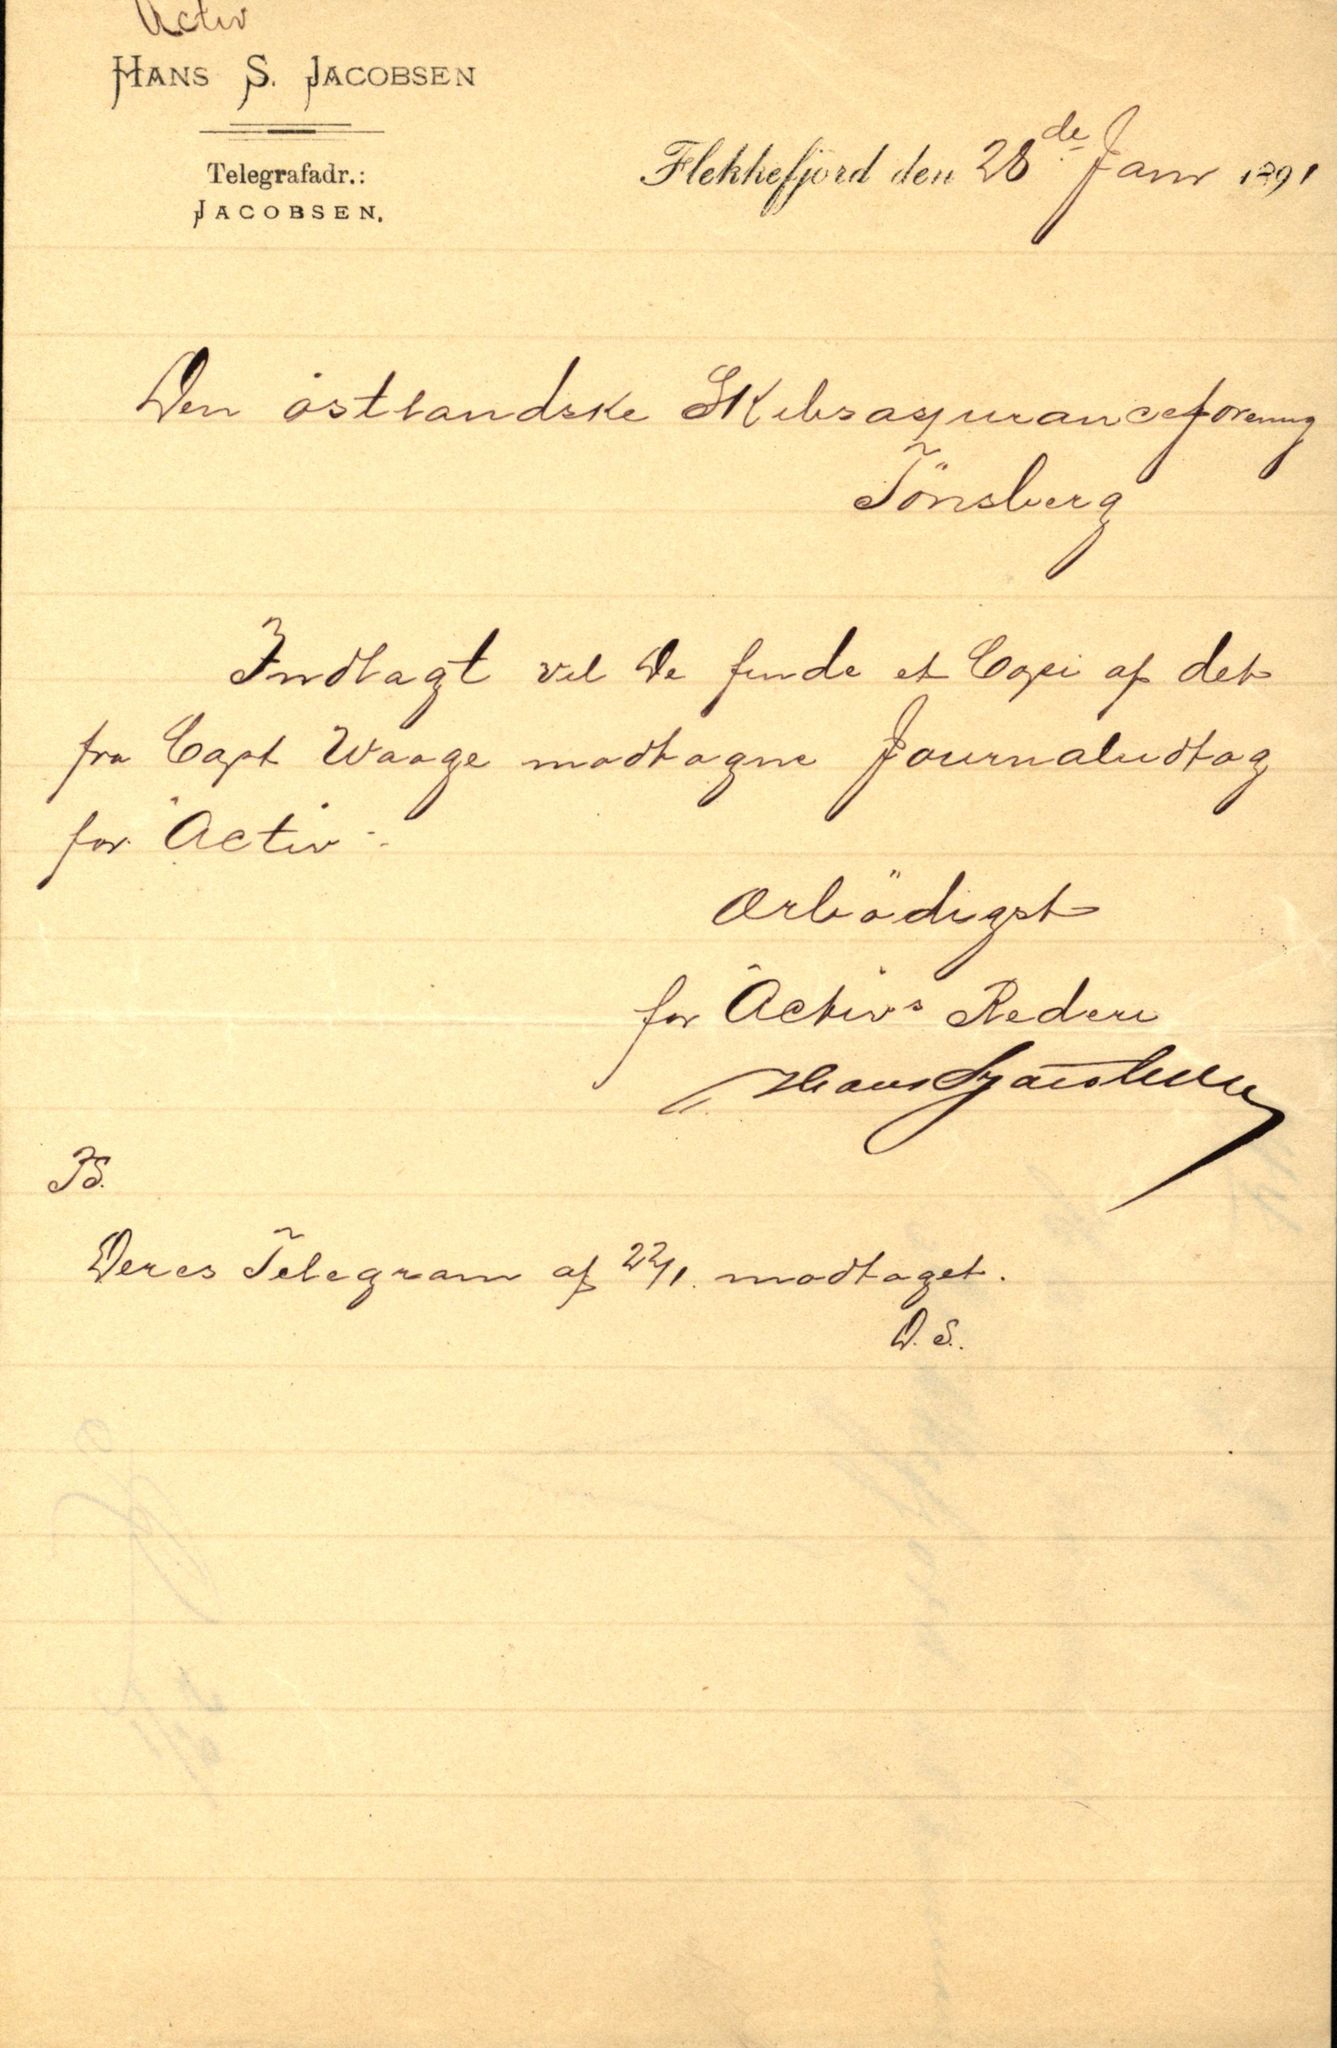 Activ
HANS S. JACOBSEN
Telegrafadr.:
JACOBSEN.
Flekkefjord den 28de Janr 1891
Den östlandske Skibsassuranceforening
Tönsberg
Indlagt vil De finde et Copi af det
fra Capt Waage modtagne Journaludtog
for "Activ".
Ærbödigst
for "Activ"s Rederi
Hans S Jacobsen
PS.
Deres Telegram af 22/1. modtaget.
D. S.